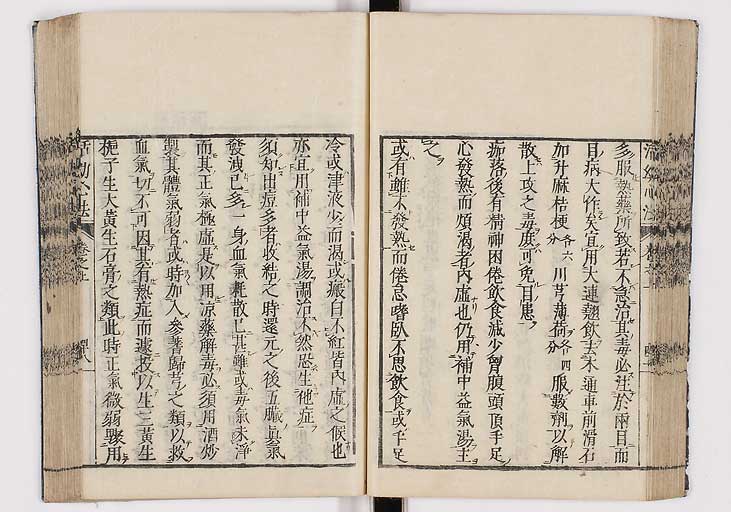 多服熱藥所致若不急治其毒必注於兩目而
目病大作矣宜用大連翹飲去木通車前滑石
加升麻桔梗各六分川芎薄荷各四分服數劑以解
散上攻之毒庶可免目患
痂落後有精神困倦飲食減少胃腹頭頂手足
心發熱而煩渴者內虛也仍用補中益氣湯主
之
或有雖不發熱而倦怠嗜臥不思飲食或手足
冷或津液少而渴或癜白不紅皆內虛之候也
亦宜用補中益氣湯調治不然恐生他症
須知出痘多者收結之時還元之後五臟真氣
發洩已多一身血氣耗散已甚雖或毒氣未淨
而其正氣極虛是以用涼藥解毒必須用酒炒
製其體氣弱者或時加人參蓍歸芎之類以救
血氣切不可因其有熱症而遽投以生三黃生
梔子生大黃生石膏之類此時正氣微弱驟用
活幼心法